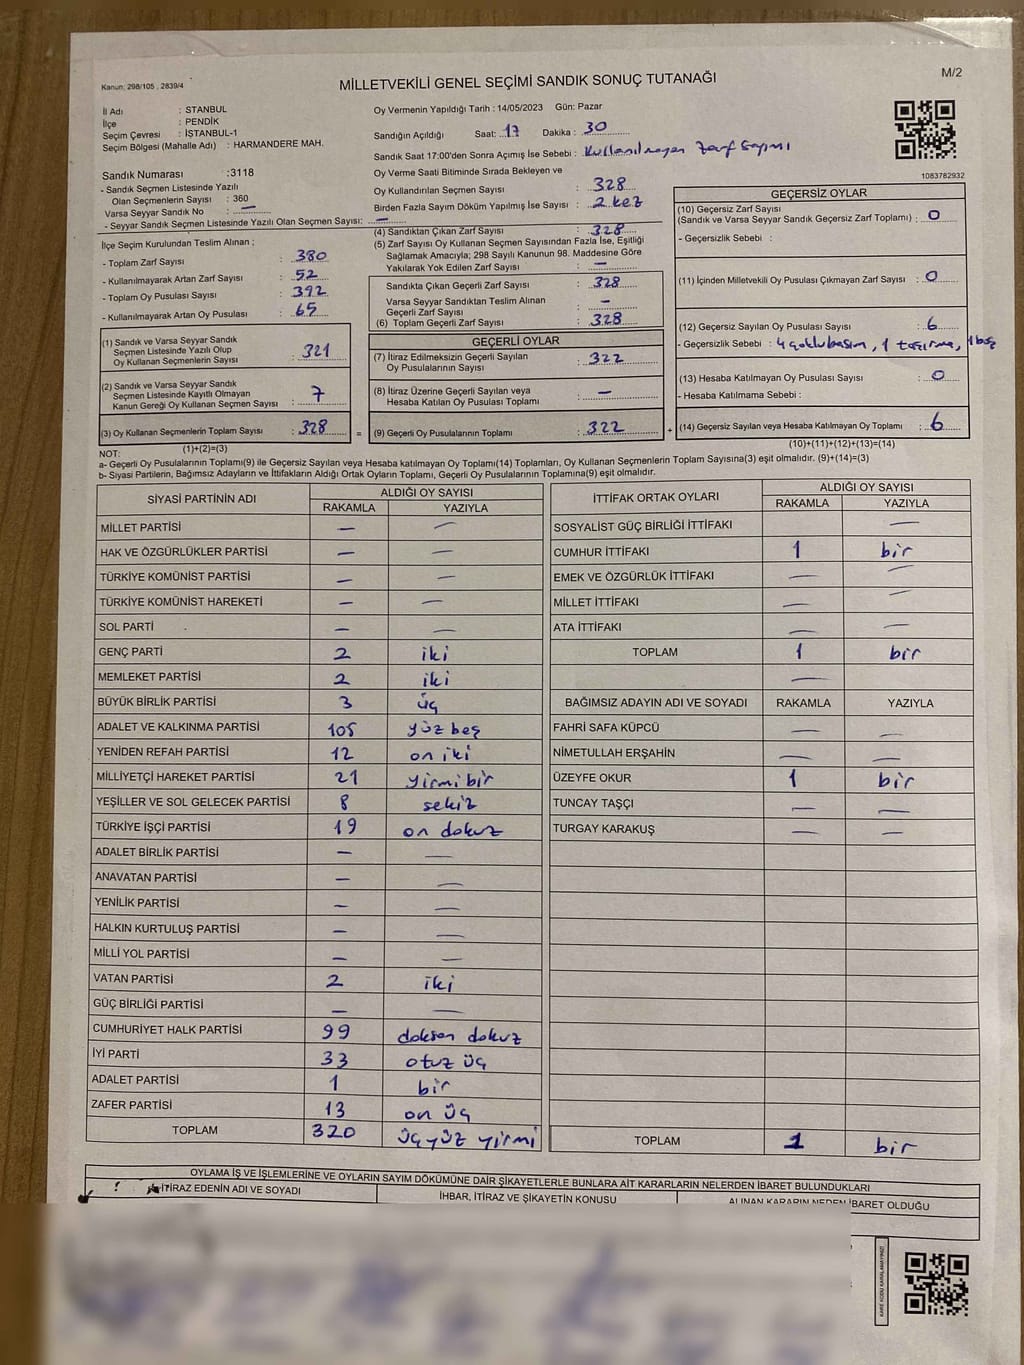 Kanun: 298/105 , 2839/4
MİLLETVEKİLİ GENEL SEÇİMİ SANDIK SONUÇ TUTANAĞI
M/2
İl Adı : STANBUL
İlçe : PENDİK
Seçim Çevresi : İSTANBUL-1
Seçim Bölgesi (Mahalle Adı) : HARMANDERE MAH.
Sandık Numarası :3118
- Sandık Seçmen Listesinde Yazılı
Olan Seçmenlerin Sayısı : 360
Varsa Seyyar Sandık No : —
- Seyyar Sandık Seçmen Listesinde Yazılı Olan Seçmen Sayısı: —
Oy Vermenin Yapıldığı Tarih : 14/05/2023 Gün: Pazar
Sandığın Açıldığı Saat: 17 Dakika : 30
Sandık Saat 17:00'den Sonra Açımış İse Sebebi : Kullanılmayan zarf sayımı
Oy Verme Saati Bitiminde Sırada Bekleyen ve
Oy Kullandırılan Seçmen Sayısı : 328
Birden Fazla Sayım Döküm Yapılmış İse Sayısı : 2 kez
1083782932
İlçe Seçim Kurulundan Teslim Alınan ;
- Toplam Zarf Sayısı : 380
- Kullanılmayarak Artan Zarf Sayısı : 52
- Toplam Oy Pusulası Sayısı : 392
- Kullanılmayarak Artan Oy Pusulası : 65
(1) Sandık ve Varsa Seyyar Sandık
Seçmen Listesinde Yazılı Olup
Oy Kullanan Seçmenlerin Sayısı : 321
(2) Sandık ve Varsa Seyyar Sandık
Seçmen Listesinde Kayıtlı Olmayan
Kanun Gereği Oy Kullanan Seçmen Sayısı : 7
(3) Oy Kullanan Seçmenlerin Toplam Sayısı : 328
(1)+(2)=(3)
(4) Sandıktan Çıkan Zarf Sayısı : 328
(5) Zarf Sayısı Oy Kullanan Seçmen Sayısından Fazla İse, Eşitliği
Sağlamak Amacıyla; 298 Sayılı Kanunun 98. Maddesine Göre
Yakılarak Yok Edilen Zarf Sayısı : —
Sandıkta Çıkan Geçerli Zarf Sayısı : 328
Varsa Seyyar Sandıktan Teslim Alınan
Geçerli Zarf Sayısı : —
(6) Toplam Geçerli Zarf Sayısı : 328
GEÇERLİ OYLAR
(7) İtiraz Edilmeksizin Geçerli Sayılan
Oy Pusulalarının Sayısı : 322
(8) İtiraz Üzerine Geçerli Sayılan veya
Hesaba Katılan Oy Pusulası Toplamı : —
= (9) Geçerli Oy Pusulalarının Toplamı : 322 +
GEÇERSİZ OYLAR
(10) Geçersiz Zarf Sayısı
(Sandık ve Varsa Seyyar Sandık Geçersiz Zarf Toplamı) : 0
- Geçersizlik Sebebi :
(11) İçinden Milletvekili Oy Pusulası Çıkmayan Zarf Sayısı : 0
(12) Geçersiz Sayılan Oy Pusulası Sayısı : 6
- Geçersizlik Sebebi : 4 çoklu basım, 1 taşırma, 1 boş
(13) Hesaba Katılmayan Oy Pusulası Sayısı : 0
- Hesaba Katılmama Sebebi :
(14) Geçersiz Sayılan veya Hesaba Katılmayan Oy Toplamı : 6
(10)+(11)+(12)+(13)=(14)
NOT:
a- Geçerli Oy Pusulalarının Toplamı(9) ile Geçersiz Sayılan veya Hesaba katılmayan Oy Toplamı(14) Toplamları, Oy Kullanan Seçmenlerin Toplam Sayısına(3) eşit olmalıdır. (9)+(14)=(3)
b- Siyasi Partilerin, Bağımsız Adayların ve İttifakların Aldığı Ortak Oyların Toplamı, Geçerli Oy Pusulalarının Toplamına(9) eşit olmalıdır.
SİYASİ PARTİNİN ADI ALDIĞI OY SAYISI
RAKAMLA YAZIYLA
MİLLET PARTİSİ — —
HAK VE ÖZGÜRLÜKLER PARTİSİ — —
TÜRKİYE KOMÜNİST PARTİSİ — —
TÜRKİYE KOMÜNİST HAREKETİ — —
SOL PARTİ — —
GENÇ PARTİ 2 iki
MEMLEKET PARTİSİ 2 iki
BÜYÜK BİRLİK PARTİSİ 3 üç
ADALET VE KALKINMA PARTİSİ 105 yüz beş
YENİDEN REFAH PARTİSİ 12 on iki
MİLLİYETÇİ HAREKET PARTİSİ 21 yirmi bir
YEŞİLLER VE SOL GELECEK PARTİSİ 8 sekiz
TÜRKİYE İŞÇİ PARTİSİ 19 on dokuz
ADALET BİRLİK PARTİSİ — —
ANAVATAN PARTİSİ — —
YENİLİK PARTİSİ — —
HALKIN KURTULUŞ PARTİSİ — —
MİLLİ YOL PARTİSİ — —
VATAN PARTİSİ 2 iki
GÜÇ BİRLİĞİ PARTİSİ — —
CUMHURİYET HALK PARTİSİ 99 doksan dokuz
İYİ PARTİ 33 otuz üç
ADALET PARTİSİ 1 bir
ZAFER PARTİSİ 13 on üç
TOPLAM 320 üçyüz yirmi
İTTİFAK ORTAK OYLARI ALDIĞI OY SAYISI
RAKAMLA YAZIYLA
SOSYALİST GÜÇ BİRLİĞİ İTTİFAKI —
CUMHUR İTTİFAKI 1 bir
EMEK VE ÖZGÜRLÜK İTTİFAKI — —
MİLLET İTTİFAKI — —
ATA İTTİFAKI — —
TOPLAM 1 bir
—
BAĞIMSIZ ADAYIN ADI VE SOYADI RAKAMLA YAZIYLA
FAHRİ SAFA KÜPCÜ — —
NİMETULLAH ERŞAHİN — —
ÜZEYFE OKUR 1 bir
TUNCAY TAŞÇI — —
TURGAY KARAKUŞ — —
TOPLAM 1 bir
OYLAMA İŞ VE İŞLEMLERİNE VE OYLARIN SAYIM DÖKÜMÜNE DAİR ŞİKAYETLERLE BUNLARA AİT KARARLARIN NELERDEN İBARET BULUNDUKLARI
İTİRAZ EDENİN ADI VE SOYADI İHBAR, İTİRAZ VE ŞİKAYETİN KONUSU ALINAN KARARIN NEDEN İBARET OLDUĞU